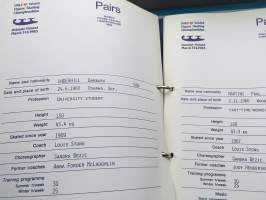 1983 World
Figure Skating
Championships
Helsinki Finland
March 7-13, 1983
Pairs
Name and nationality UNDERHILL BARBARA CAN
Date and place of birth 24.6.1963 OSHAWA, ONT.
Profession UNIVERSITY STUDENT
Height 150
Weight 45.4 KG
Skated since year 1969
Coach LOUIS STONG
Choreographer SANDRA BEZIC
Former coaches ANNA FORDER MCLAUGHLIN
Training programme
Summer h/week 30
Winter h/week 25
World
Figure Skating
Championships
Helsinki Finland
March 7-13, 1983
Pairs
Name and nationality MARTINI PAUL
Date and place of birth 2.11.1960
Profession PART-TIME
Height
Weight
Skated since year
Coach LOUIS STONG
Choreographer SANDRA BEZIC
Former coaches JUDY
Training programme
Summer h/week 30
Winter h/week 25